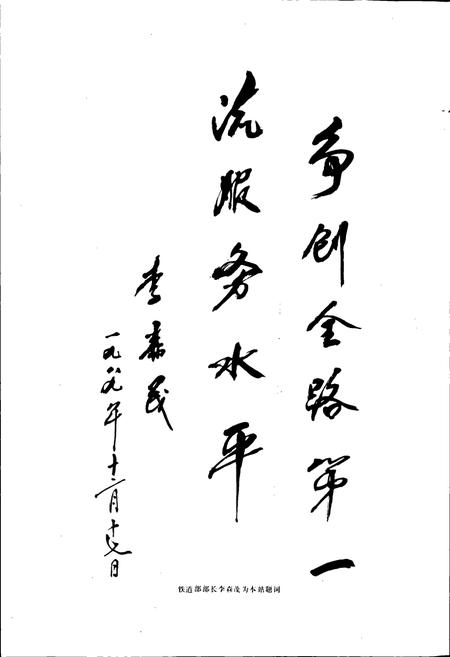 争创全路第一
流服务水平
李森茂
一九八九年十二月十七日
铁道部部长李森茂为本站题词